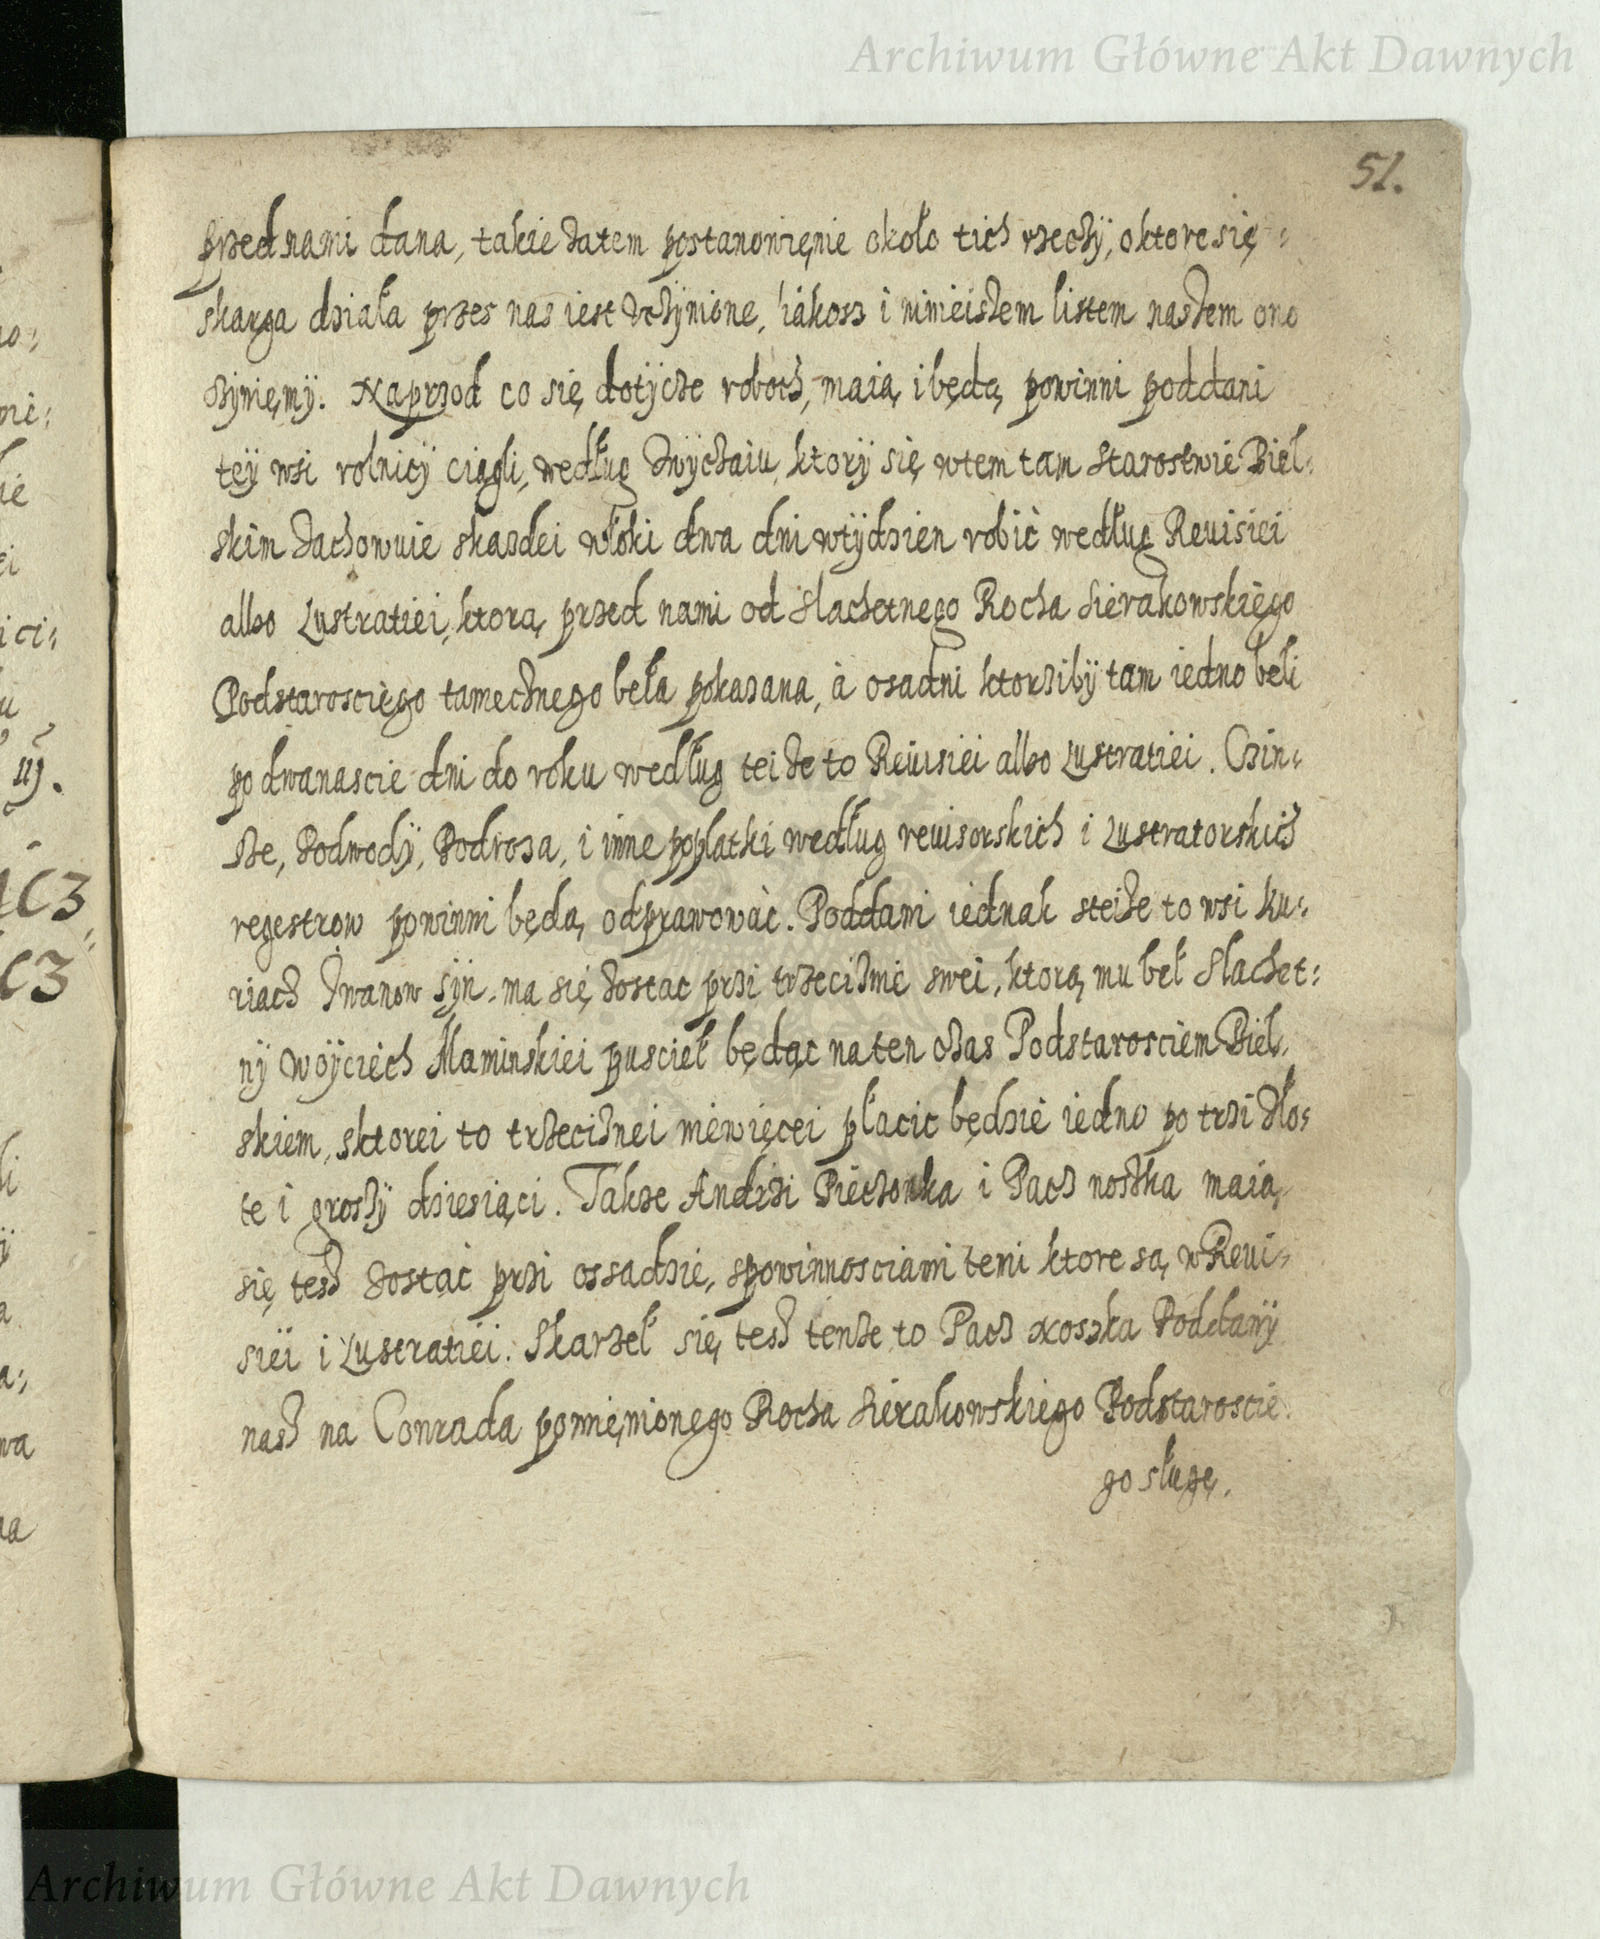 Archiwum Główne Akt Dawnych
51.
przed nami dana, takie zatem postanowięnie około tich rzeczÿ, o ktore się
skarga działa przes nas iest vczÿnione, iákosz i ninieiszem listem naszem ono
czÿnięmÿ. Naprzod co się dotÿcze roboth, maią i będą powinni poddani
teÿ wsi rolnicÿ ciągli, według zwÿczaiu, ktorÿ się w tem tam Starostwie Biel-
skim zachowuie skazdei włoki dwa dni w tÿdzien robić według Reuisiei
albo Lustratiei, ktorą przed nami od Slachetnego Rocha Sierakowskiego
Podstarosciego tamecznego beła pokazana, à osadni ktorziby tam iedno beli
po dwanascie dni do roku według tei ze to Reuisiei albo Lustratiei. Czin-
sze, Podwodÿ, Podroza, i inne popłatki według reuisorskich i Lustratorskich
regestrow powinni będą odprawowàc. Poddani iednak steize to wsi Ku-
riach Iwanow sÿn. ma się zostac przi trzeciznie swei, ktorą mu beł Slachet-
nÿ Woÿciech Maminskiei pusciel będąc na ten czas Podstarosciem Biel-
skiem, sktorei to trzeciznei niewięcei płacic będzie iedno po trzi zło-
te i groszÿ dziesiąci. Takze Andrzi Pieczonka i Pacz noszka maią
się tesz zostać przi ossadzie, spowinnosciami temi ktore są w Reui-
siei i Lustratiei. Skarzeł się tesz tenze to Pacz Noszka Poddanÿ
nasz na Conrada pomięnionego Rocha Sierakowskiego Podstaroscie
go sługę.
Archiwum Główne Akt Dawnych